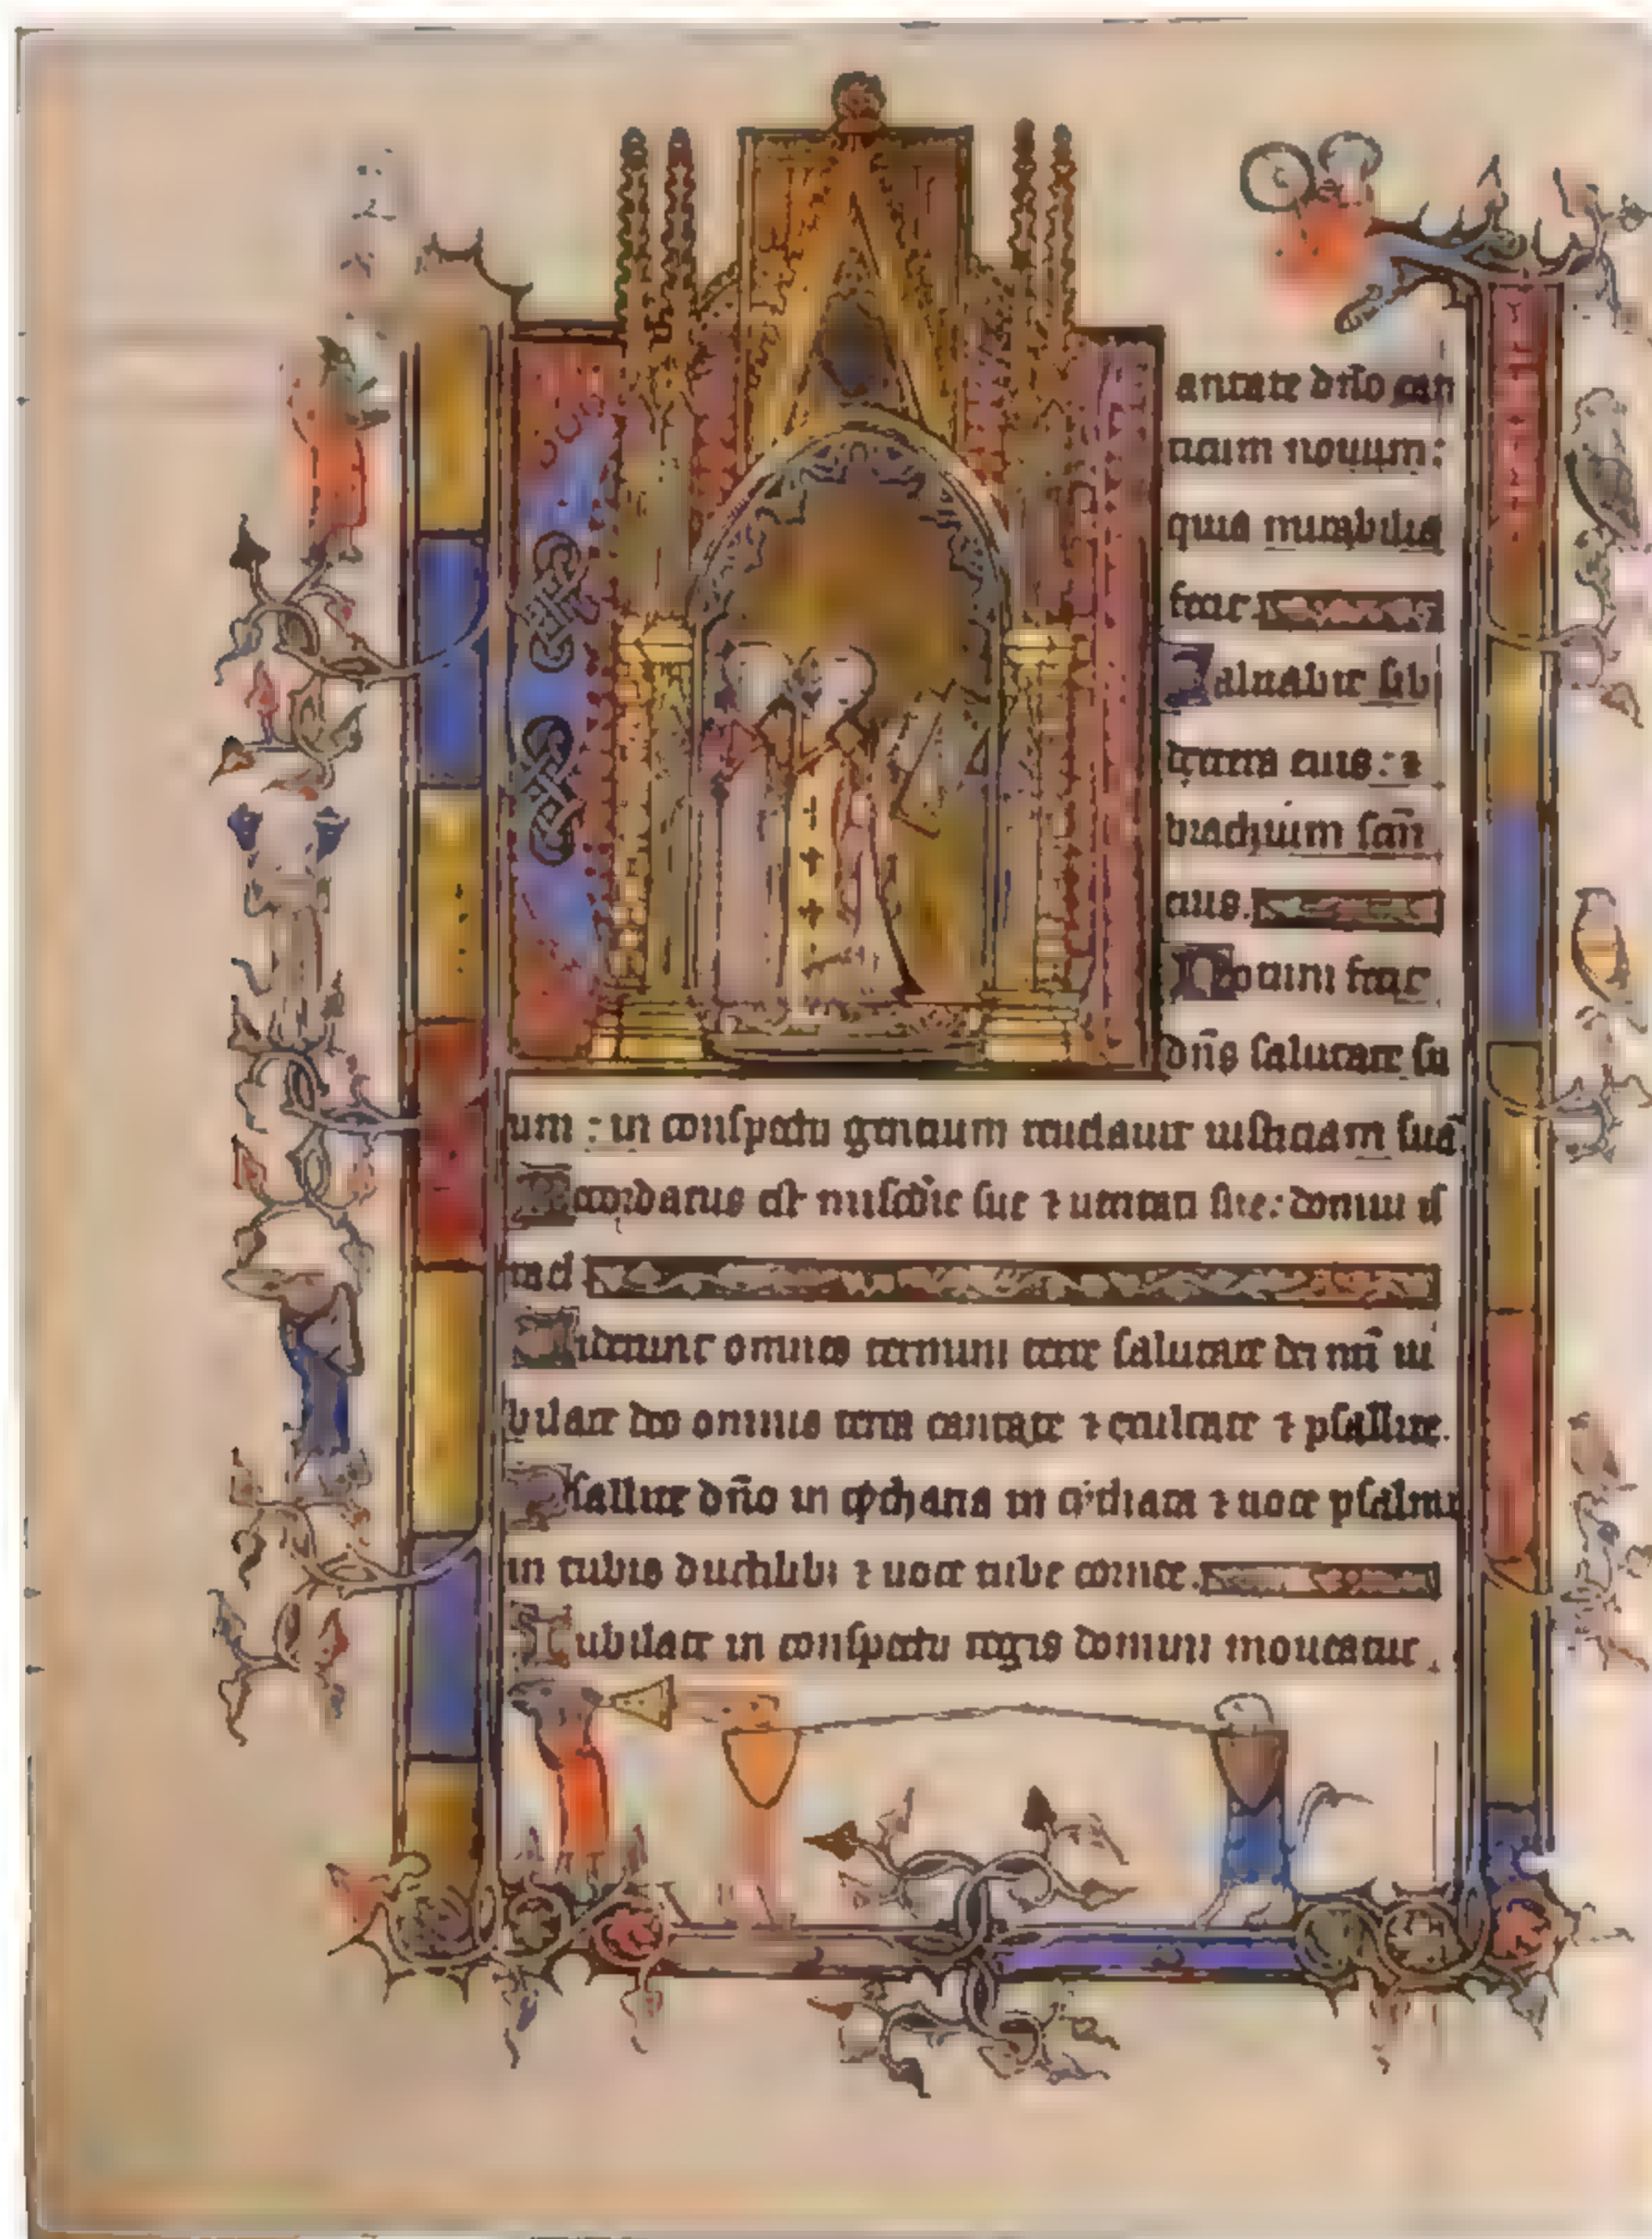 antate dño can
ticum nouum:
quia mirabilia
fecit
Saluabit sib
dextera eius: ⁊
brachium sañ
eius.
Notum fecit
dñs salutare su
um: in conspectu gentium reuelauit iusticiam suā
Recordatus est mi͞scdie sue ⁊ ueritati sue: domui is
rael
Uiderunt omnes termini terre salutare dei nr̄i iu
bilate deo omnis terra cantate ⁊ exultate ⁊ psallite.
Psallite dño in cythara in cythara ⁊ uoce psalmi
in tubis ductilib; ⁊ uoce tube cornee.
Iubilate in conspectu regis domini moueatur